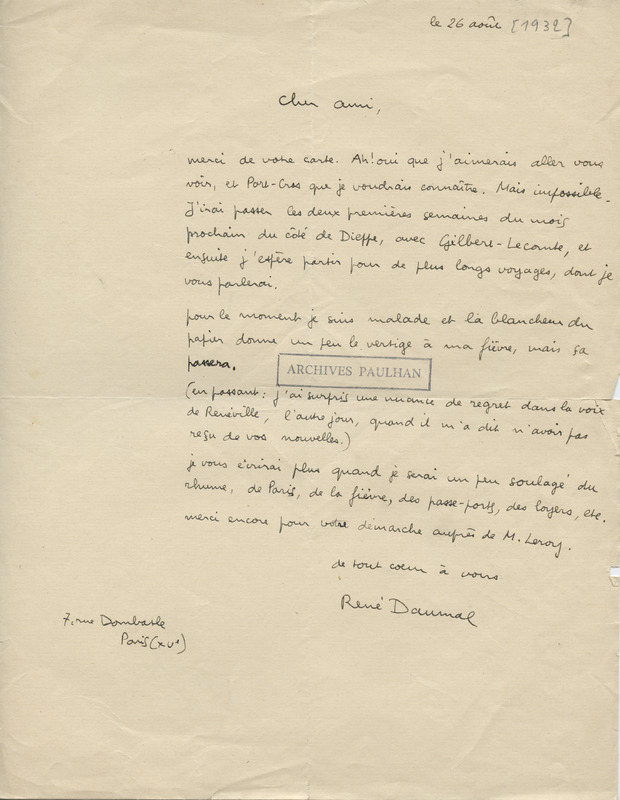 le 26 août [1932]
Cher ami,
merci de votre carte. Ah! oui que j'aimerais aller vous
voir, et Port-Cros que je voudrais connaître. Mais impossible.
J'irai passer les deux premières semaines du mois
prochain du côté de Dieppe, avec Gilbert-Lecomte, et
ensuite j'espère partir pour de plus longs voyages, dont je
vous parlerai.
pour le moment je suis malade et la blancheur du
papier donne un peu le vertige à ma fièvre, mais ça
passera.
ARCHIVES PAULHAN
(en passant: j'ai surpris une nuance de regret dans la voix
de Renéville, l'autre jour, quand il m'a dit n'avoir pas
reçu de vos nouvelles.)
je vous écrirai plus quand je serai un peu soulagé du
rhume, de Paris, de la fièvre, des passe-ports, des loyers, etc.
merci encore pour votre démarche auprès de M. Leroy.
de tout coeur à vous
René Daumal
7, rue Dombasle
Paris (XVe)